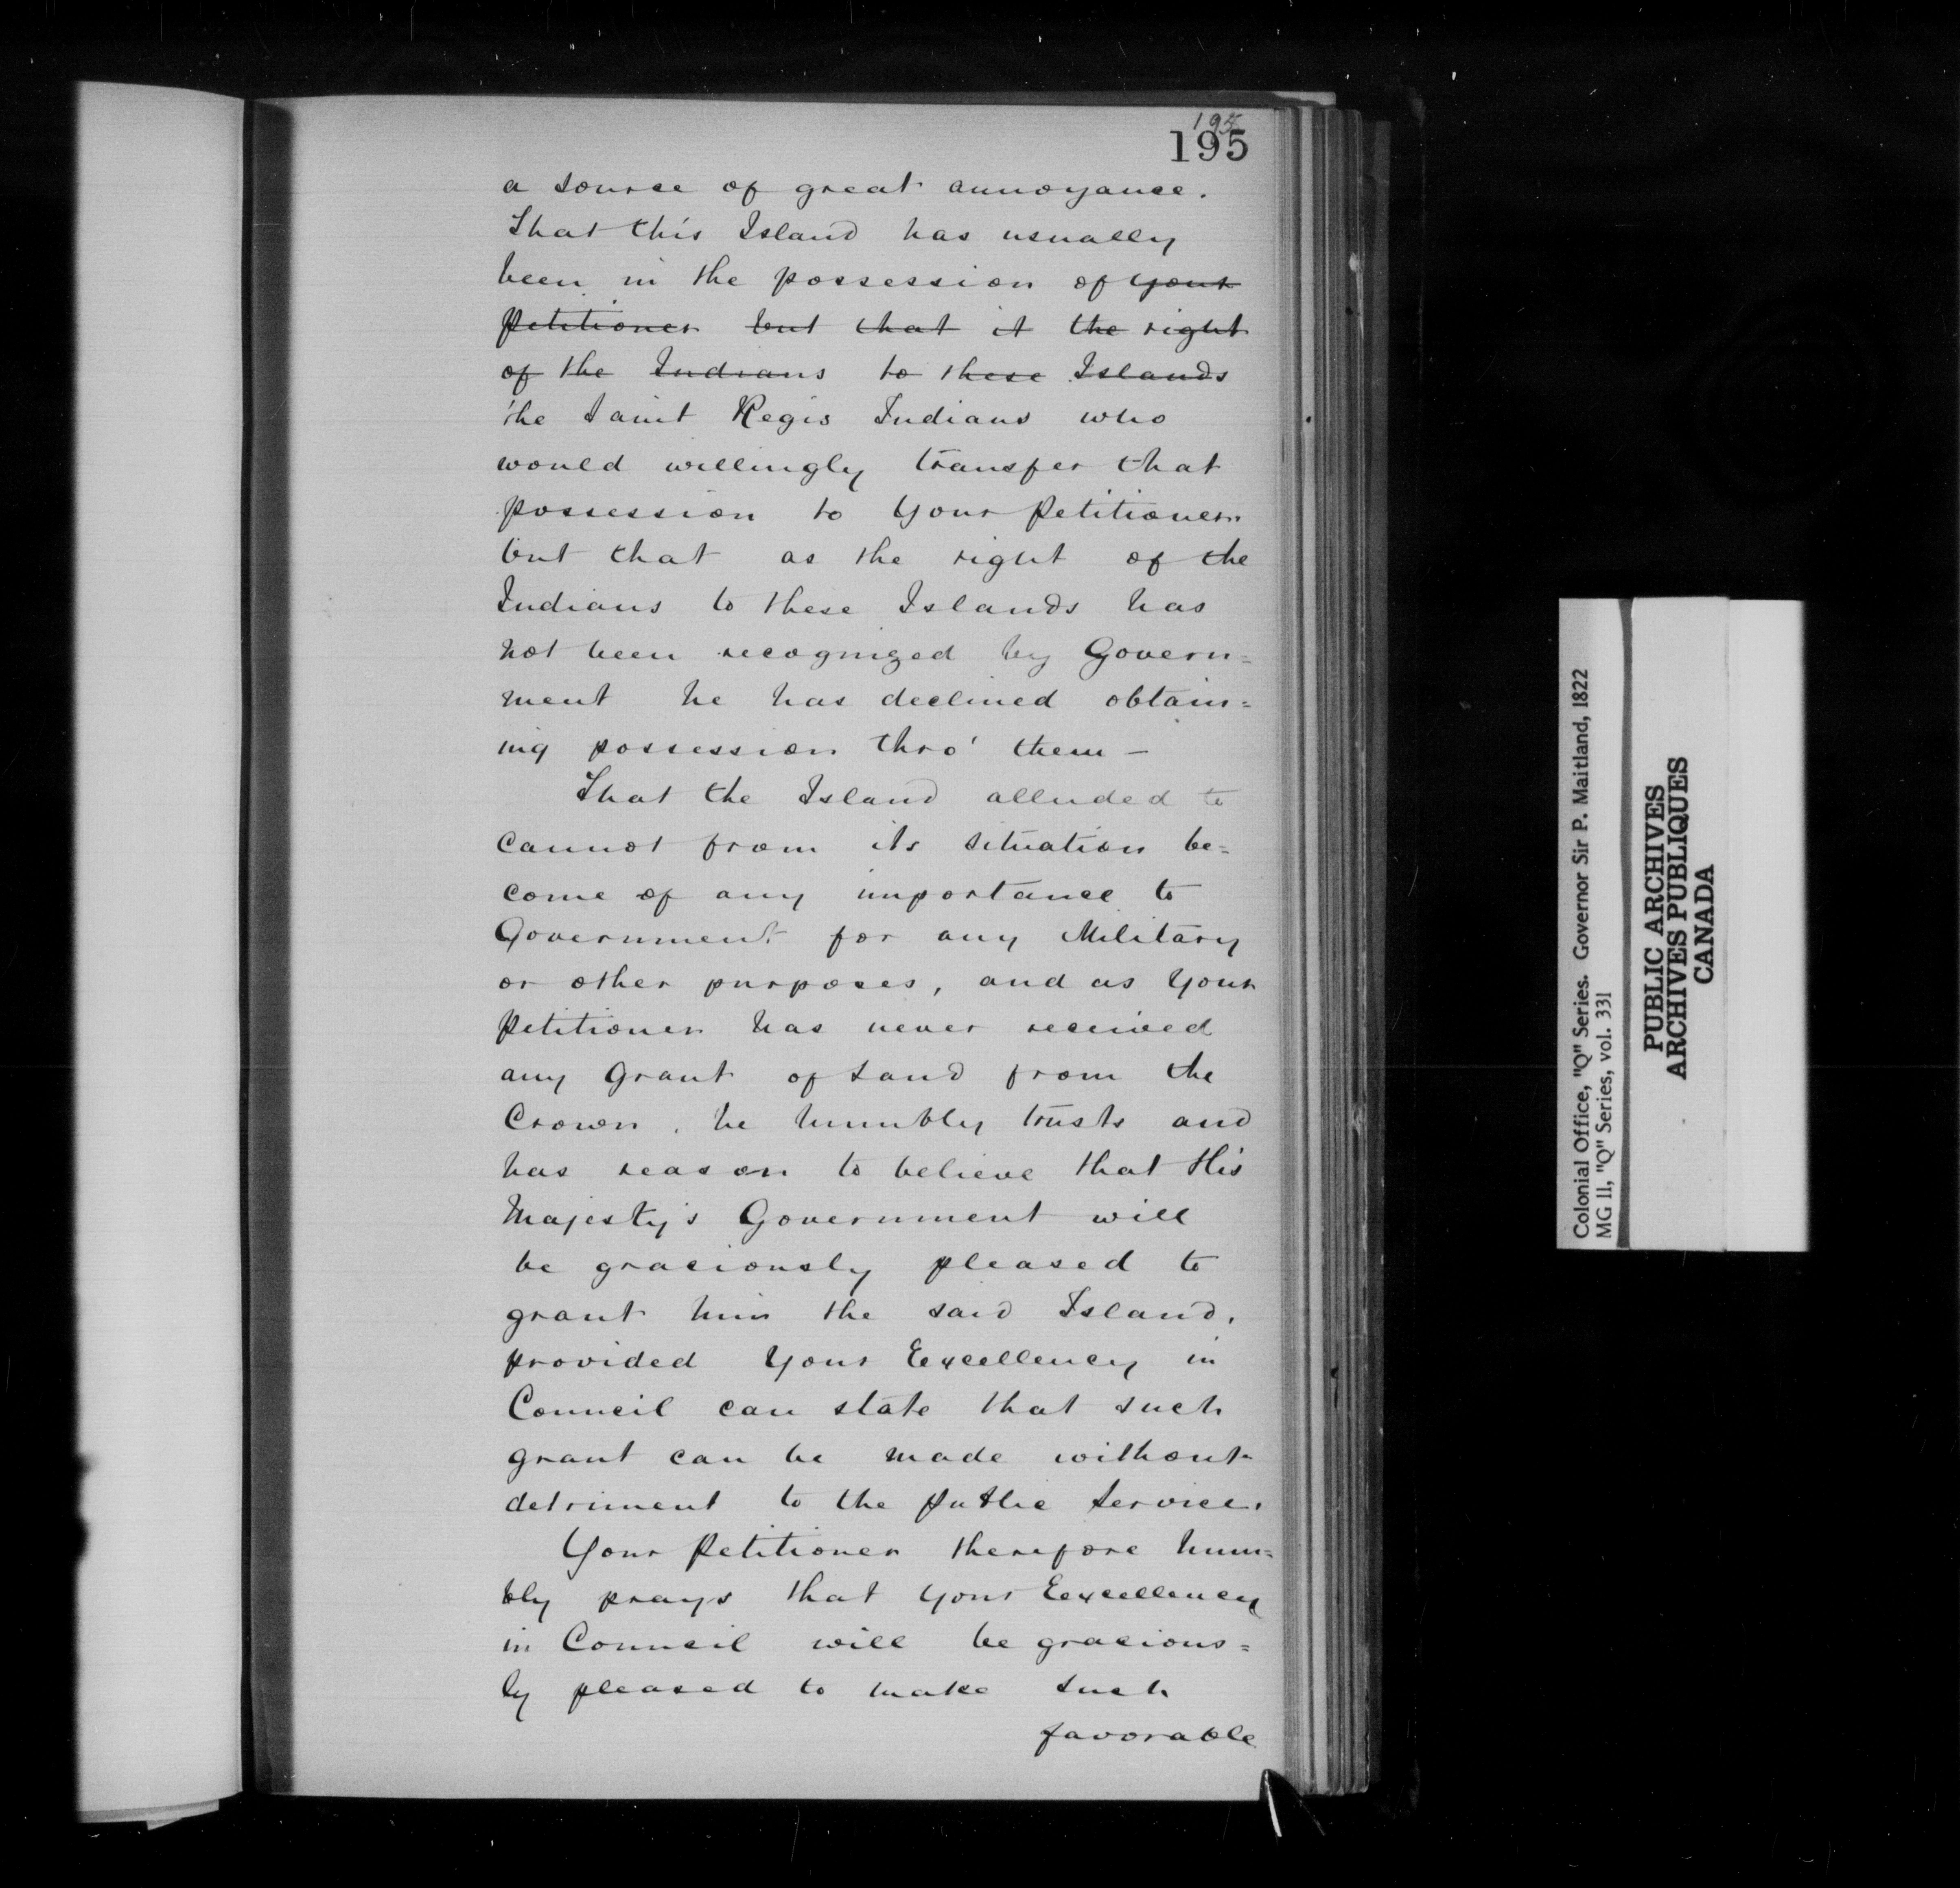 195
195
a source of great annoyance.
That this Island has usually
been in the possession of your
Petitioner but that it the right
of the Indians to these Islands
the Saint Regis Indians who
would willingly transfer that
possession to your Petitioner
but that as the right of the
Indians to these Islands has
not been recognized by Govern=
ment he has declined obtain=
ing possession thro' them —
That the Island alluded to
cannot from its situation be=
come of any importance to
Government for any Military
or other purposes, and as your
Petitioner has never received
any Grant of Land from the
Crown, he humbly trusts and
has reason to believe that His
Majesty's Government will
be graciously pleased to
grant him the said Island,
provided your Excellency in
Council can state that such
grant can be made without
detriment to the Public Service.
Your Petitioner therefore hum=
bly prays that your Excellency
in Council will be gracious=
ly pleased to make such
favorable
Colonial Office, "Q" Series. Governor Sir P. Maitland, 1822
MG 11, "Q" Series, vol. 331
PUBLIC ARCHIVES
ARCHIVES PUBLIQUES
CANADA